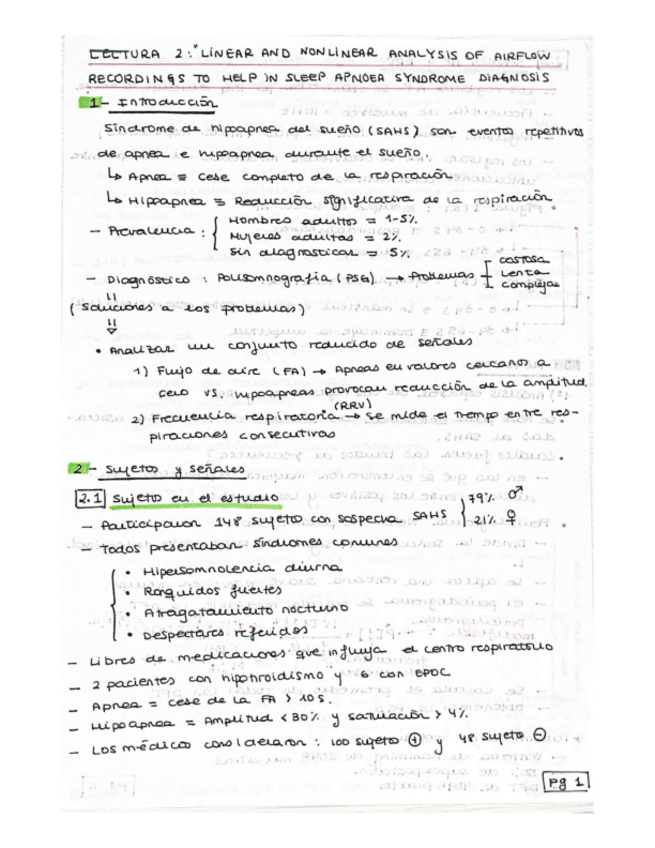 LECTURA 2: "LINEAR AND NONLINEAR ANALYSIS OF AIRFLOW
RECORDINGS TO HELP IN SLEEP APNOEA SYNDROME DIAGNOSIS
1- Introducción
Síndrome de hipoapnea del sueño (SAHS) son eventos repetitivos
de apnea e hipoapnea durante el sueño.
↳ Apnea = cese completo de la respiración
↳ Hipoapnea = Reducción significativa de la respiración
- Prevalencia: { Hombres adultos = 1-5%
Mujeres adultas = 2%
Sin diagnosticas = 5%
- Diagnóstico: Polisomnografía (PSG) → Problemas [ costosa
lenta
compleja
(soluciones a los problemas)
• Analizar un conjunto reducido de señales
1) Flujo de aire (FA) → Apneas en valores cercanos a
cero vs. hipoapneas provocan reducción de la amplitud
2) Frecuencia respiratoria (RRV) → se mide el tiempo entre res-
piraciones consecutivas
2- Sujetos y señales
2.1 Sujetos en el estudio
- Participaron 148 sujetos con sospecha SAHS { 79% ♂
21% ♀
- Todos presentaban síndromes comunes
• Hipersomnolencia diurna
• Ronquidos fuertes
• Atragatamiento nocturno
• Despertares referidos
- Libres de medicaciones que influya el centro respiratorio
- 2 pacientes con hipothroidismo y 6 con EPOC
- Apnea = cese de la FA > 10s.
- Hipoapnea = Amplitud < 30% y saturación > 4%
- Los médicos consideraron: 100 sujetos ⊕ y 48 sujetos ⊖
Pg 1